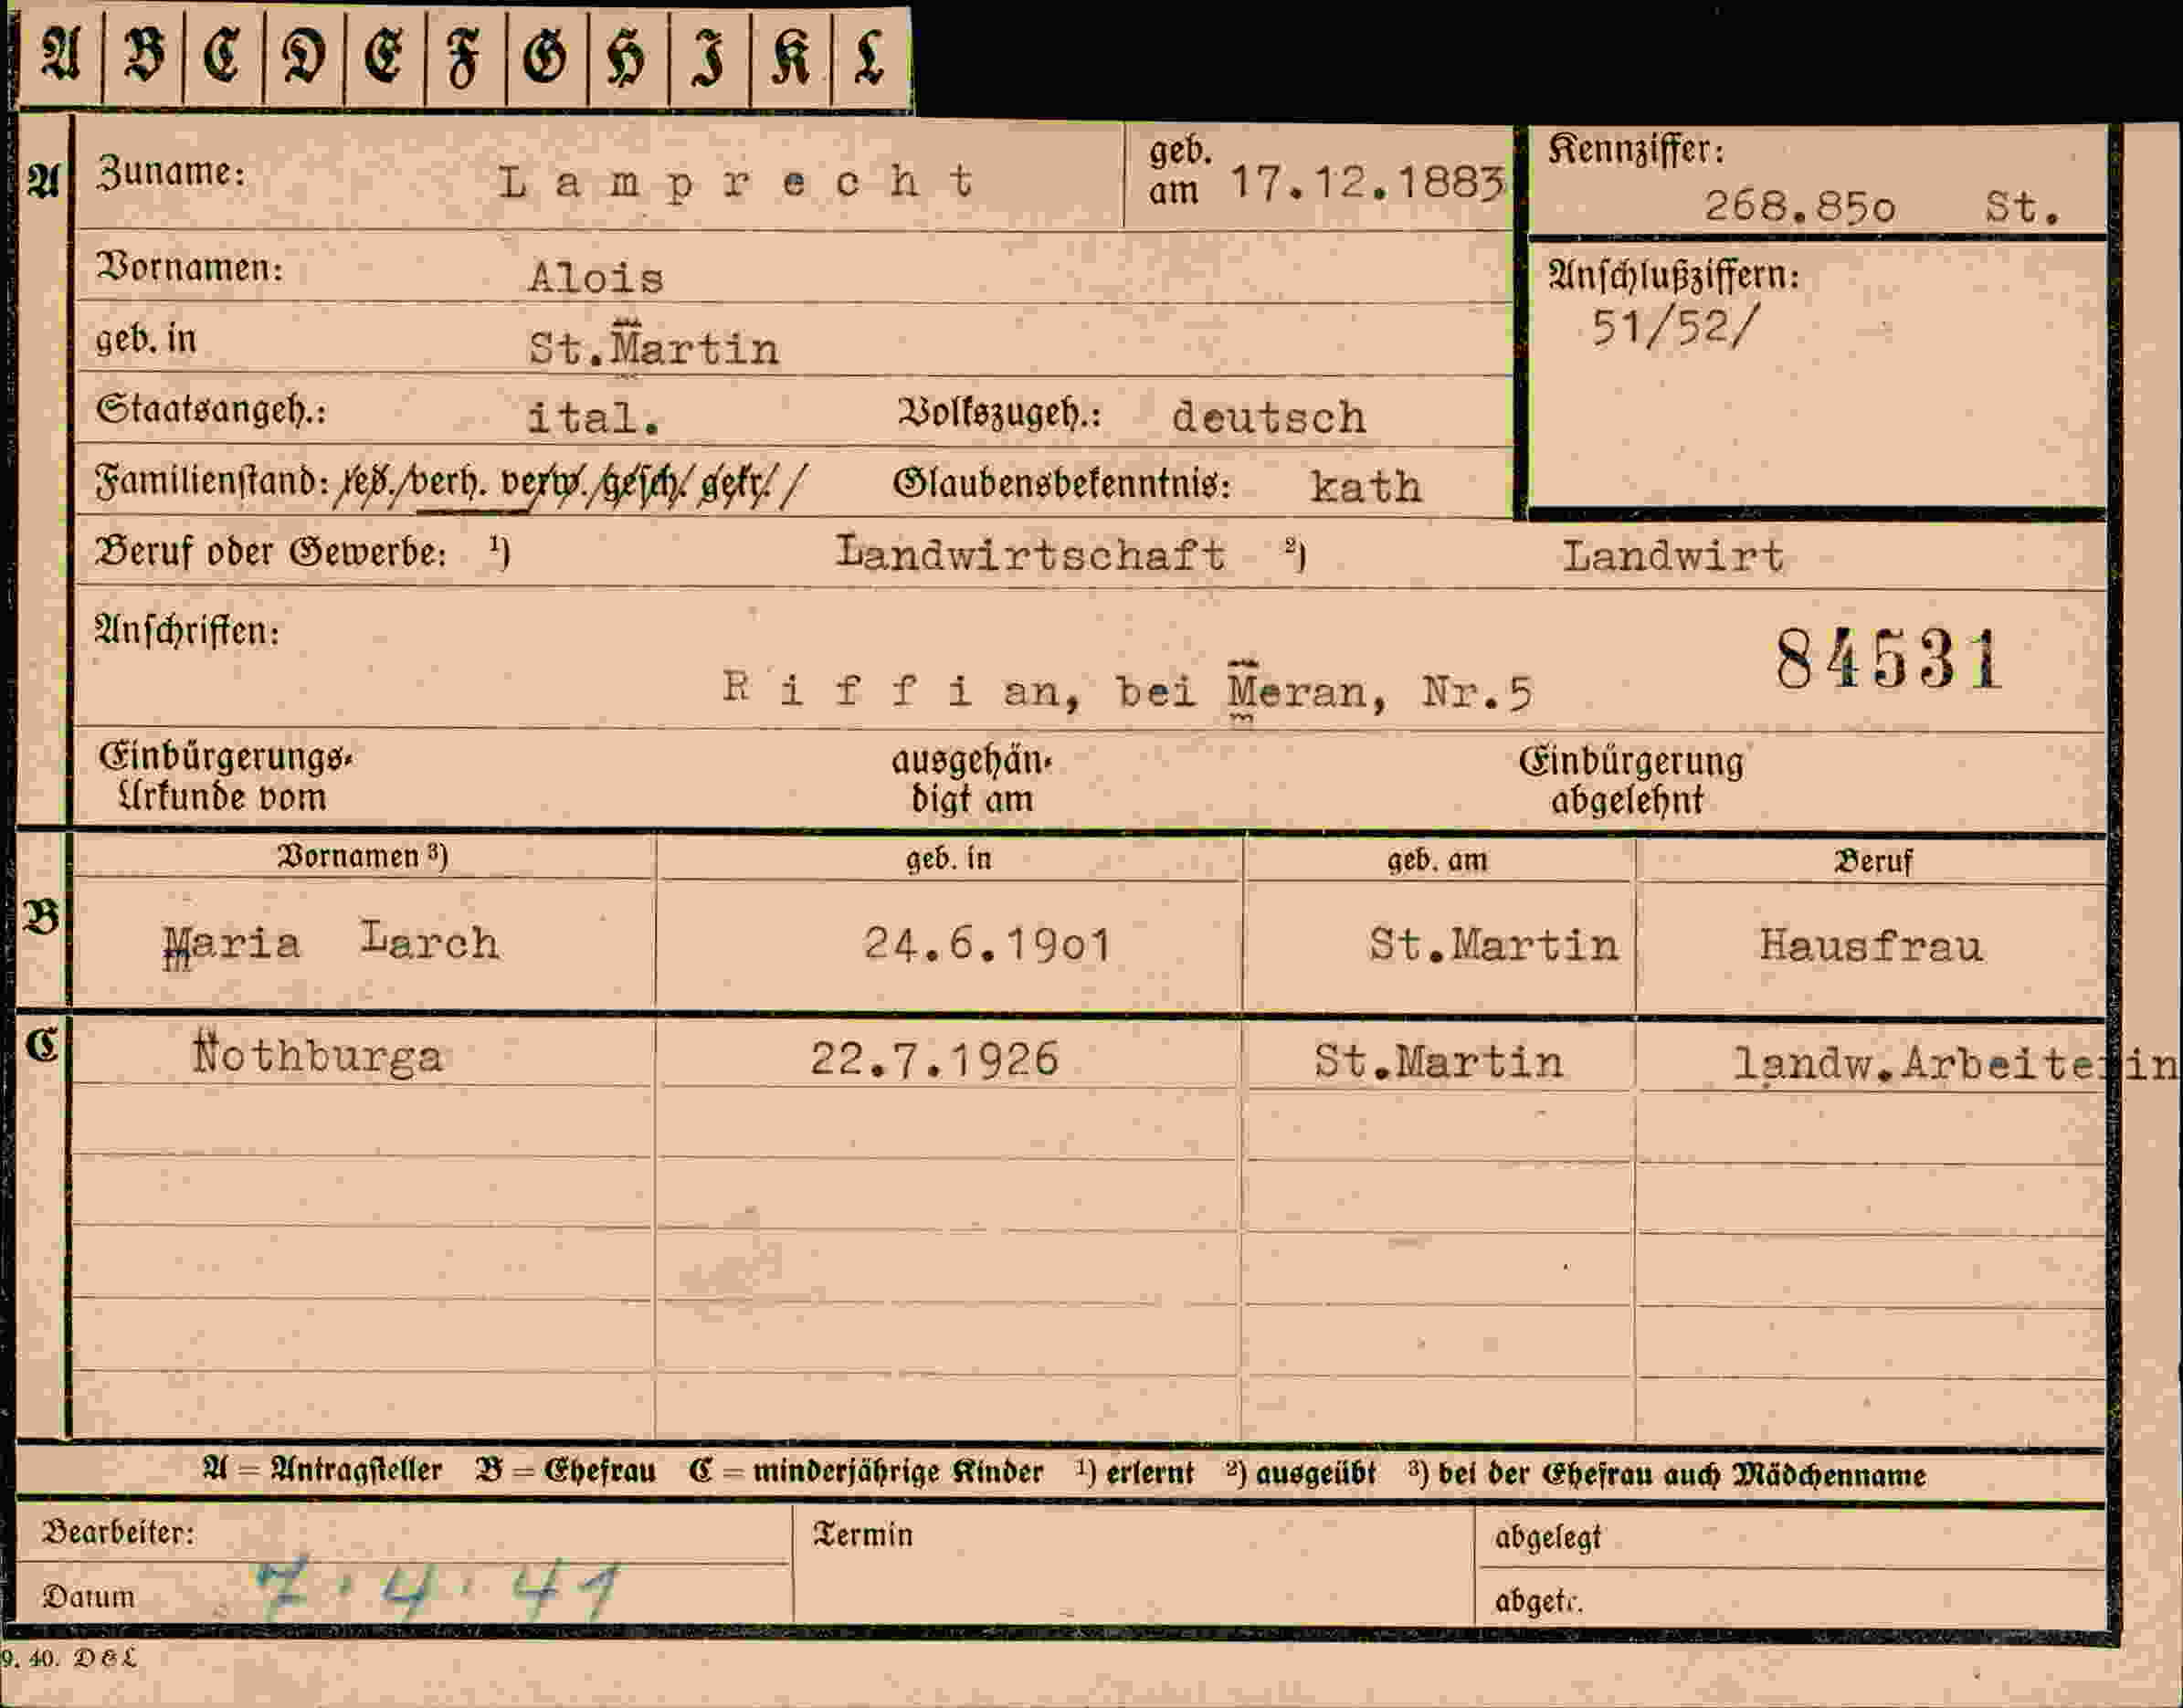 A B C D E F G H I K L
A Zuname: Lamprecht geb. am 17.12.1883 Kennziffer: 268.85o St.
Vornamen: Alois
Anschlußziffern:
51/52/
geb. in St.Martin
Staatsangeh.: ital. Volkszugeh.: deutsch
Familienstand: led./verh. verw./gesch./getr./ Glaubensbekenntnis: kath
Beruf oder Gewerbe: ¹) Landwirtschaft ²) Landwirt
Anschriften:
84531
Riffian, bei Meran, Nr.5
Einbürgerungs- ausgehän- Einbürgerung
Urkunde vom digt am abgelehnt
Vornamen ³) geb. in geb. am Beruf
B Maria Larch 24.6.19o1 St.Martin Hausfrau
C Nothburga 22.7.1926 St.Martin landw.Arbeiterin
A = Antragsteller B = Ehefrau C = minderjährige Kinder ¹) erlernt ²) ausgeübt ³) bei der Ehefrau auch Mädchenname
Bearbeiter: Termin abgelegt
Datum 7.4.41 abgetr.
9. 40. D&L